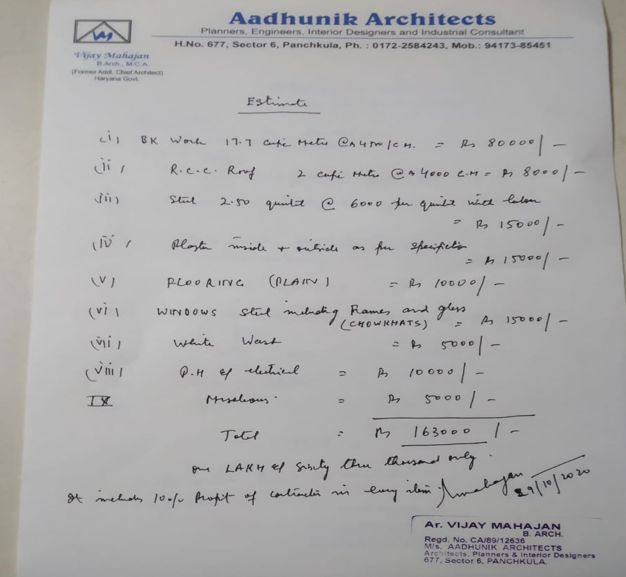 Aadhunik Architects
Planners, Engineers, Interior Designers and Industrial Consultant
H.No. 677, Sector 6, Panchkula, Ph. : 0172-2584243, Mob.: 94173-85451
Vijay Mahajan
B.Arch., M.C.A.
(Former Addl. Chief Architect)
Haryana Govt.
Estimate
(i) BK Work 17.7 cubic Metre @ /C.M. = Rs 80000/-
(ii) R.C.C. Roof 2 cubic Metre @ Rs 4000 C.M = Rs 8000/-
(iii) Steel 2.50 quintal @ 6000 per quintal with labour
= Rs 15000/-
(iv) Plaster inside + outside as per specification
= Rs 15000/-
(v) FLOORING (PLAIN) = Rs 10000/-
(vi) WINDOWS Steel including Frames and glass
(CHOWKHATS) = Rs 15000/-
(vii) White Wash = Rs 5000/-
(viii) P.H & electrical = Rs 10000/-
IX = Rs 5000/-
Total = Rs 163000/-
one LAKH & sixty three thousand only.
It includes 10% Profit of contractor in every item
29/10/2020
Ar. VIJAY MAHAJAN
B. ARCH.
Regd. No. CA/89/12636
M/s. AADHUNIK ARCHITECTS
Architects, Planners & Interior Designers
677, Sector 6, PANCHKULA.